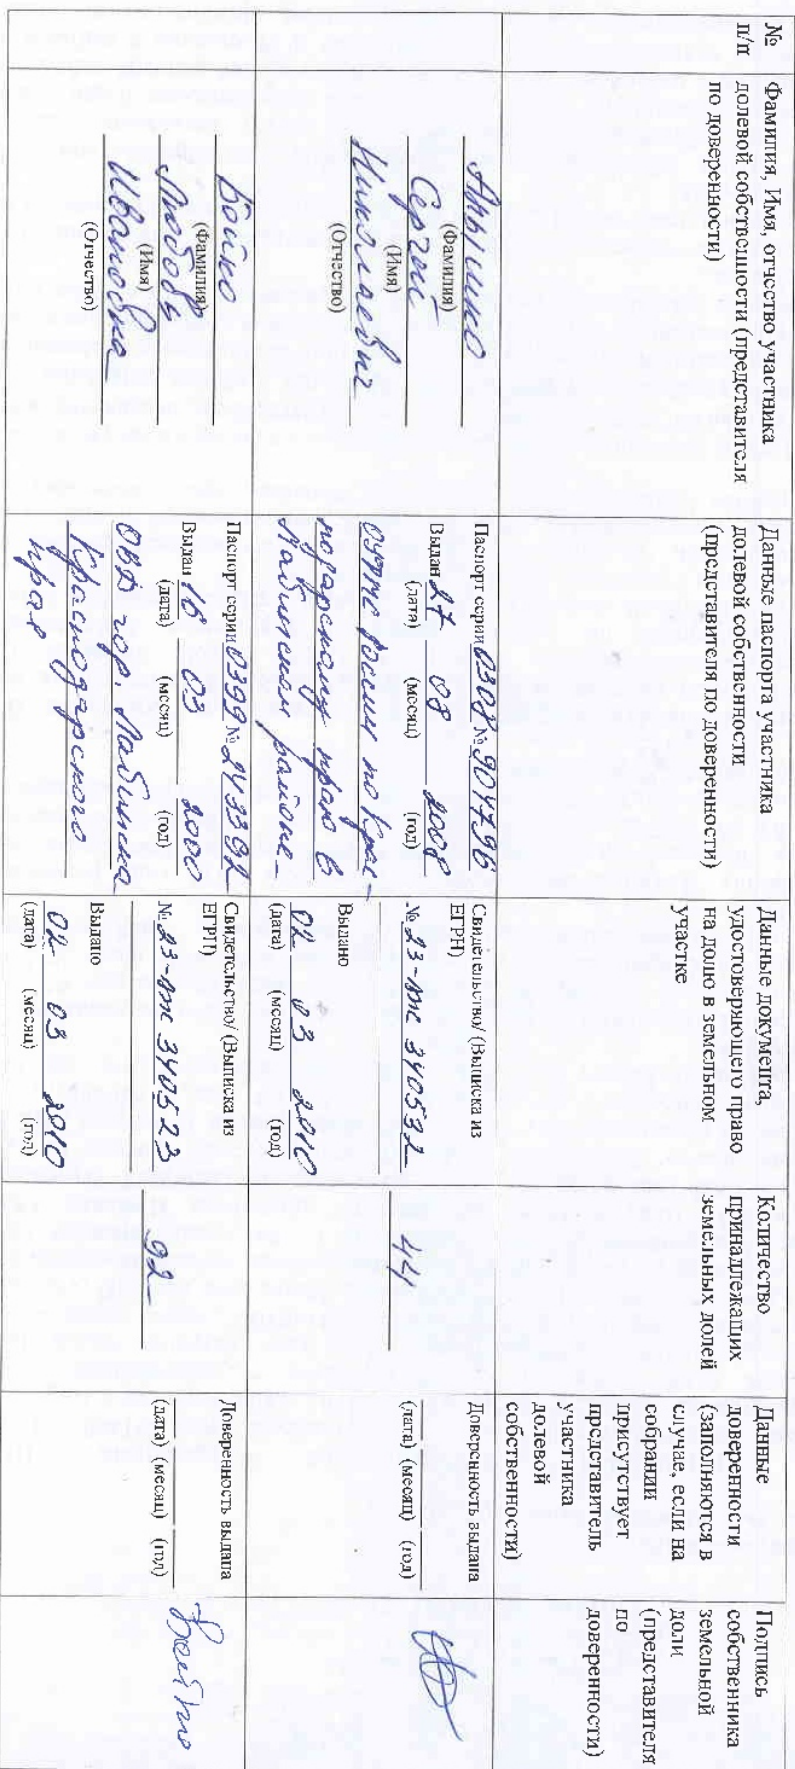 №
п/п
Фамилия, Имя, отчество участника
долевой собственности (представителя
по доверенности)
Данные паспорта участника
долевой собственности
(представителя по доверенности)
Данные документа,
удостоверяющего право
на долю в земельном
участке
Количество
принадлежащих
земельных долей
Данные
доверенности
(заполняются в
случае, если на
собрании
присутствует
представитель
участника
долевой
собственности)
Подпись
собственника
земельной
доли
(представителя
по
доверенности)
(Фамилия)
Сергей
(Имя)
Николаевич
(Отчество)
Паспорт серии 0308 № 904796
Выдан 27 08 2008
(дата) (месяц) (год)
ОУФМС России по Крас-
нодарскому краю в
Лабинском районе
Свидетельство/ (Выписка из
ЕГРН)
№ 23-АЖ 340532
Выдано
02 03 2010
(дата) (месяц) (год)
44
Доверенность выдана
(дата) (месяц) (год)
Бойко
(Фамилия)
Любовь
(Имя)
Ивановна
(Отчество)
Паспорт серии 0399 № 243392
Выдан 16 03 2000
(дата) (месяц) (год)
ОВД гор. Лабинска
Краснодарского
края
Свидетельство/ (Выписка из
ЕГРП)
№ 23-АЖ 340523
Выдано
02 03 2010
(дата) (месяц) (год)
92
Доверенность выдана
(дата) (месяц) (год)
Бойко